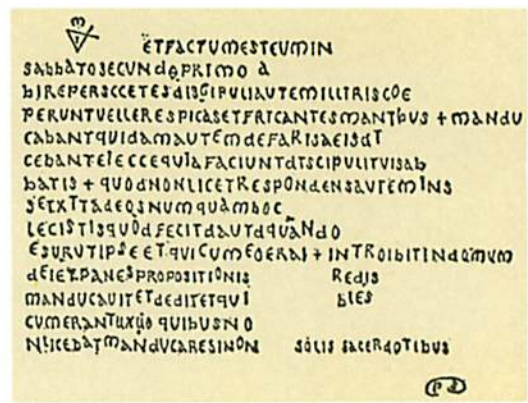 ETFACTUMESTEUMIN
SABBATOSECUNDOPRIMO A
BIREPERSCCETESDISGIPULIAUTEMILLITRISCOE
PERUNTUELLERESPICASETFRICANTESMANTBUS + MANDU
CABANTQUIDAMAUTEMDEFARISAEISDT
CEBANTEIECCEQUIAFACIUNTDTSCIPULITUISAB
BATIS + QUODNONLICETRESPONDENSAUTEMINS
SETXTTADEOSNUMQUAMBOC
LECISTISQUODFECITDAUTDQUANDO
ESURUTIPSEETQUICUMEOERAI + INTROIBITINDOMUM
DEIETPANESPROPOSITIONIS REDIS
MANDUCAUITETDEDITETQUI BLES
CUMERANTUXUO QUIBUSNO
NLICEBATMANDUCARESINON SOLIS SACERDOTIBUS